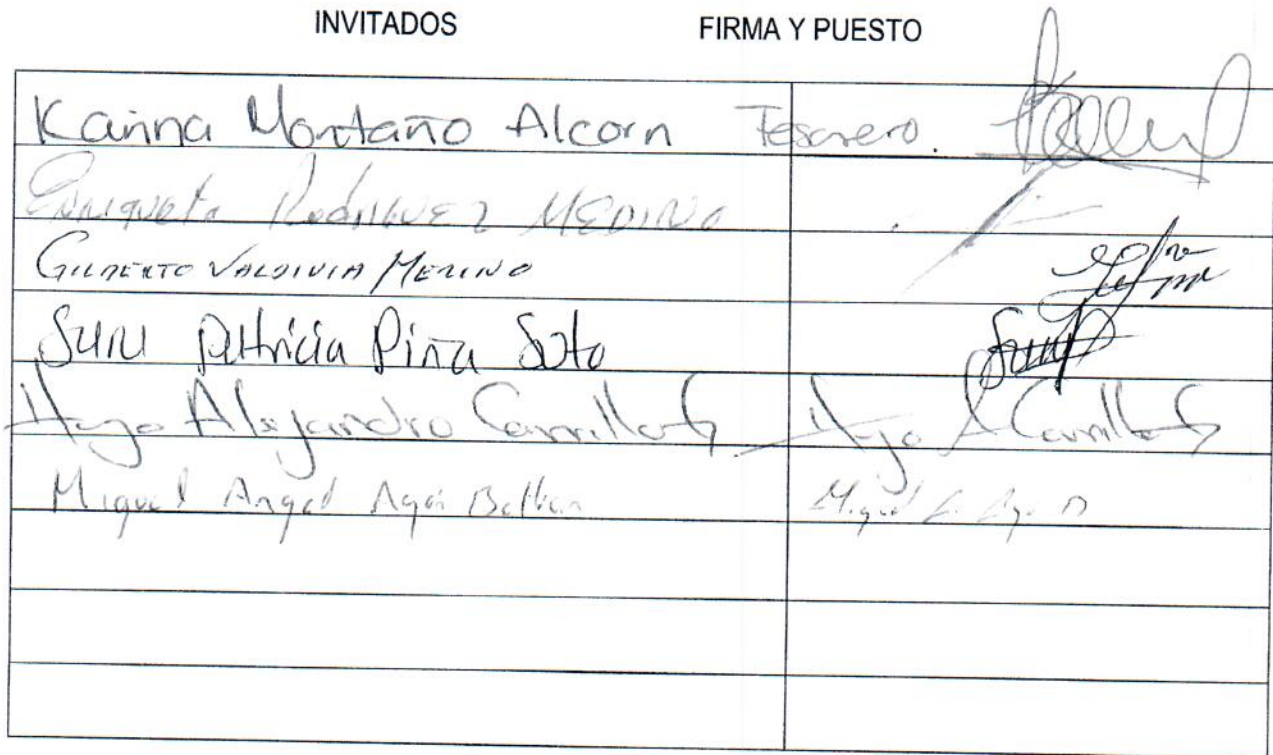 INVITADOS FIRMA Y PUESTO
Karina Montaño Alcorn Tesorero.
Enriqueta Rodriguez MEDINA
GILBERTO VALDIVIA MERINO
Sara Patricia Piña Soto
Hugo Alejandro Carrillo Hugo A Carrillo
Miguel Angel Beltran Miguel A.